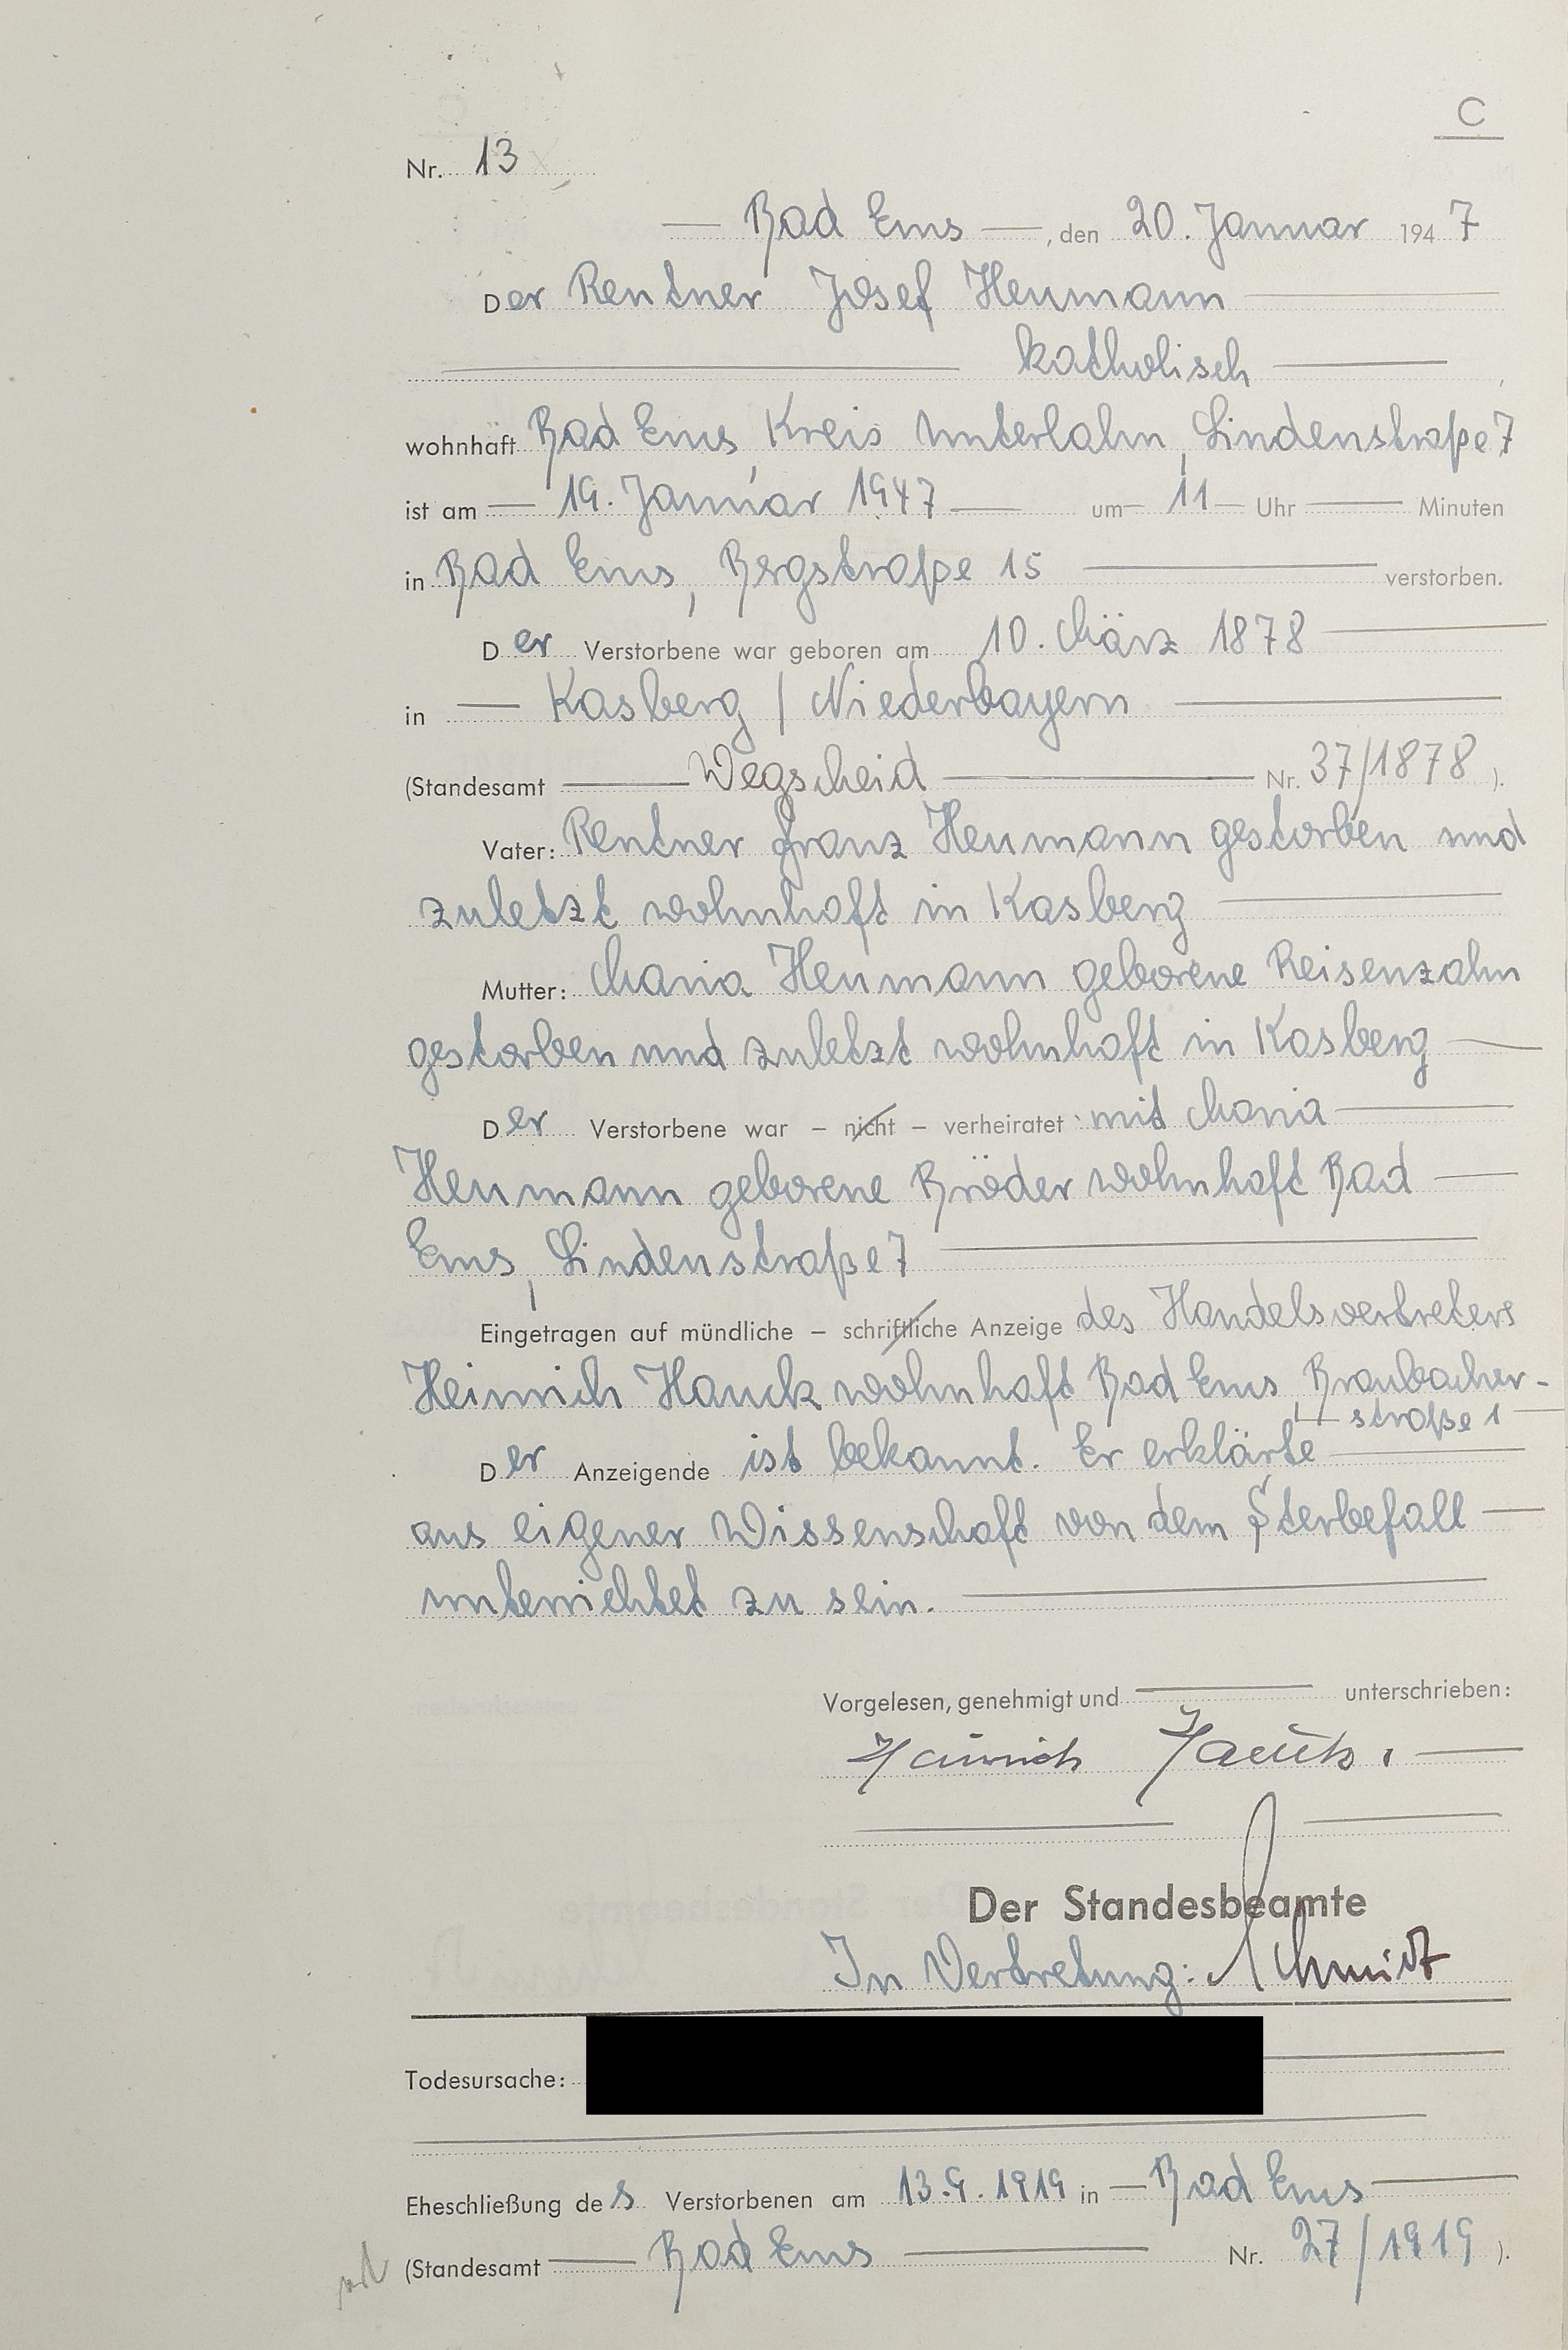 C
Nr. 13
— Bad Ems —, den 20. Januar 1947
Der Rentner Josef Heumann
katholisch ,
wohnhaft Bad Ems, Kreis Unterlahn, Lindenstraße 7
ist am — 19. Januar 1947 — um — 11 — Uhr — Minuten
in Bad Ems, Bergstraße 15 — verstorben.
Der Verstorbene war geboren am 10. März 1878
in — Kasberg / Niederbayern —
(Standesamt — Wegscheid — Nr. 37/1878 ).
Vater: Rentner Franz Heumann gestorben und
zuletzt wohnhaft in Kasberg —
Mutter: Maria Heumann geborene Reisenzahn
gestorben und zuletzt wohnhaft in Kasberg —
Der Verstorbene war – nicht – verheiratet mit Maria —
Heumann geborene Bröder wohnhaft Bad —
Ems, Lindenstraße 7 —
Eingetragen auf mündliche – schriftliche Anzeige des Handelsvertreters
Heinrich Hauck wohnhaft Bad Ems, Braubacher-
straße 1 —
Der Anzeigende ist bekannt. Er erklärte —
aus eigener Wissenschaft von dem Sterbefall —
unterrichtet zu sein. —
Vorgelesen, genehmigt und — unterschrieben:
Heinrich Hauck. —
Der Standesbeamte
In Vertretung: Schmidt
Todesursache:
Eheschließung des Verstorbenen am 13.9.1919 in — Bad Ems —
(Standesamt — Bad Ems — Nr. 27/1919 ).